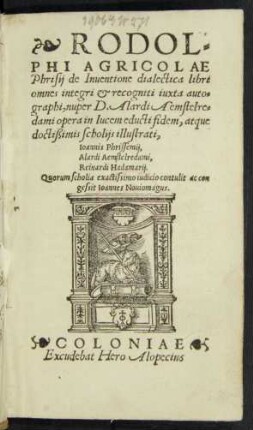 RODOL-
PHI AGRICOLAE
Phrisij de Inuentione dialectica libri
omnes integri & recogniti iuxta auto-
graphi, nuper D. Alardi Aemstelre-
dami opera in lucem educti fidem, atque
doctißimis scholijs illustrati,
Ioannis Phrissemij,
Alardi Aemstelredami,
Reinardi Hadamarij.
Quorum scholia exactissimo iudicio contulit ac con
gessit Ioannes Nouiomagus.
COLONIAE
Excudebat Hero Alopecius